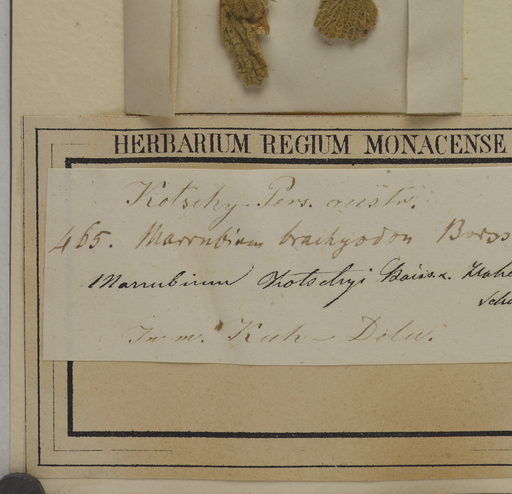 HERBARIUM REGIUM MONACENSE
Kotschy. Pers. austr.
465. Marrubium brachyodon Boiss
Marrubium Kotschyi Boiss.
In m. Kuh-Delu.